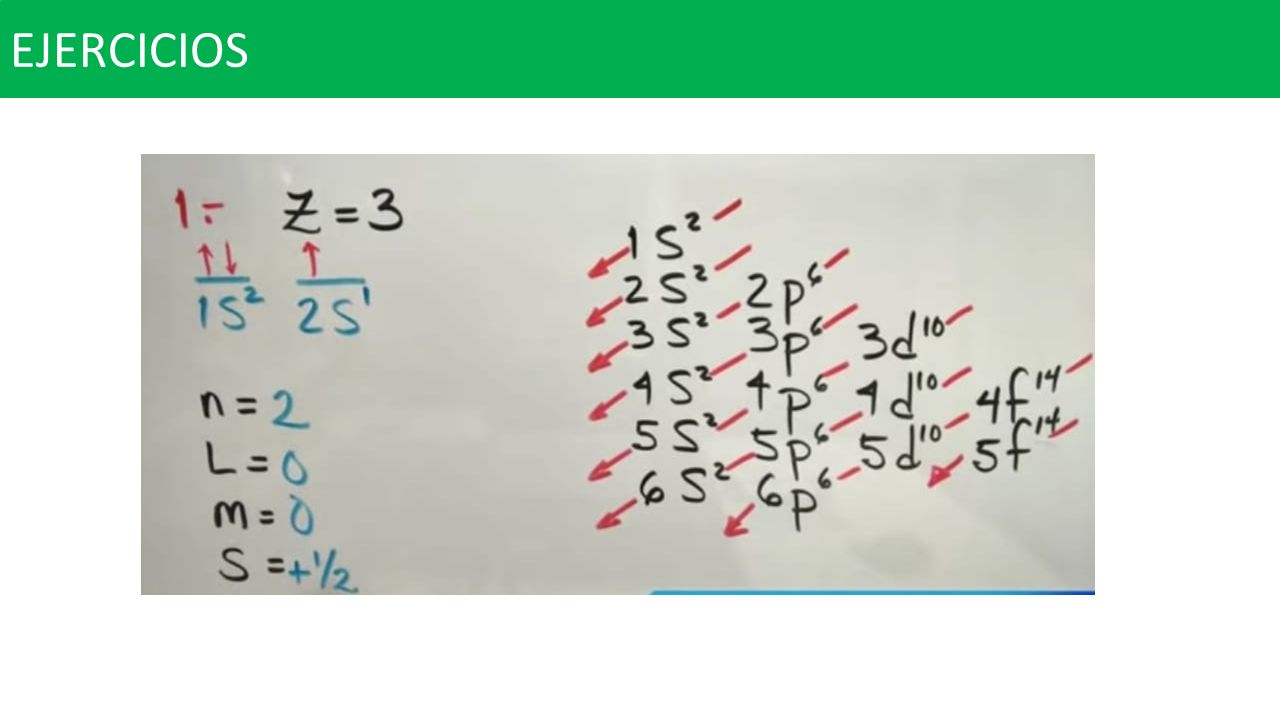 EJERCICIOS
1.- Z = 3
↑↓ ↑
1S² 2S¹
n = 2
L = 0
m = 0
S = +1/2
1S²
2S² 2p⁶
3S² 3p⁶ 3d¹⁰
4S² 4p⁶ 4d¹⁰ 4f¹⁴
5S² 5p⁶ 5d¹⁰ 5f¹⁴
6S² 6p⁶